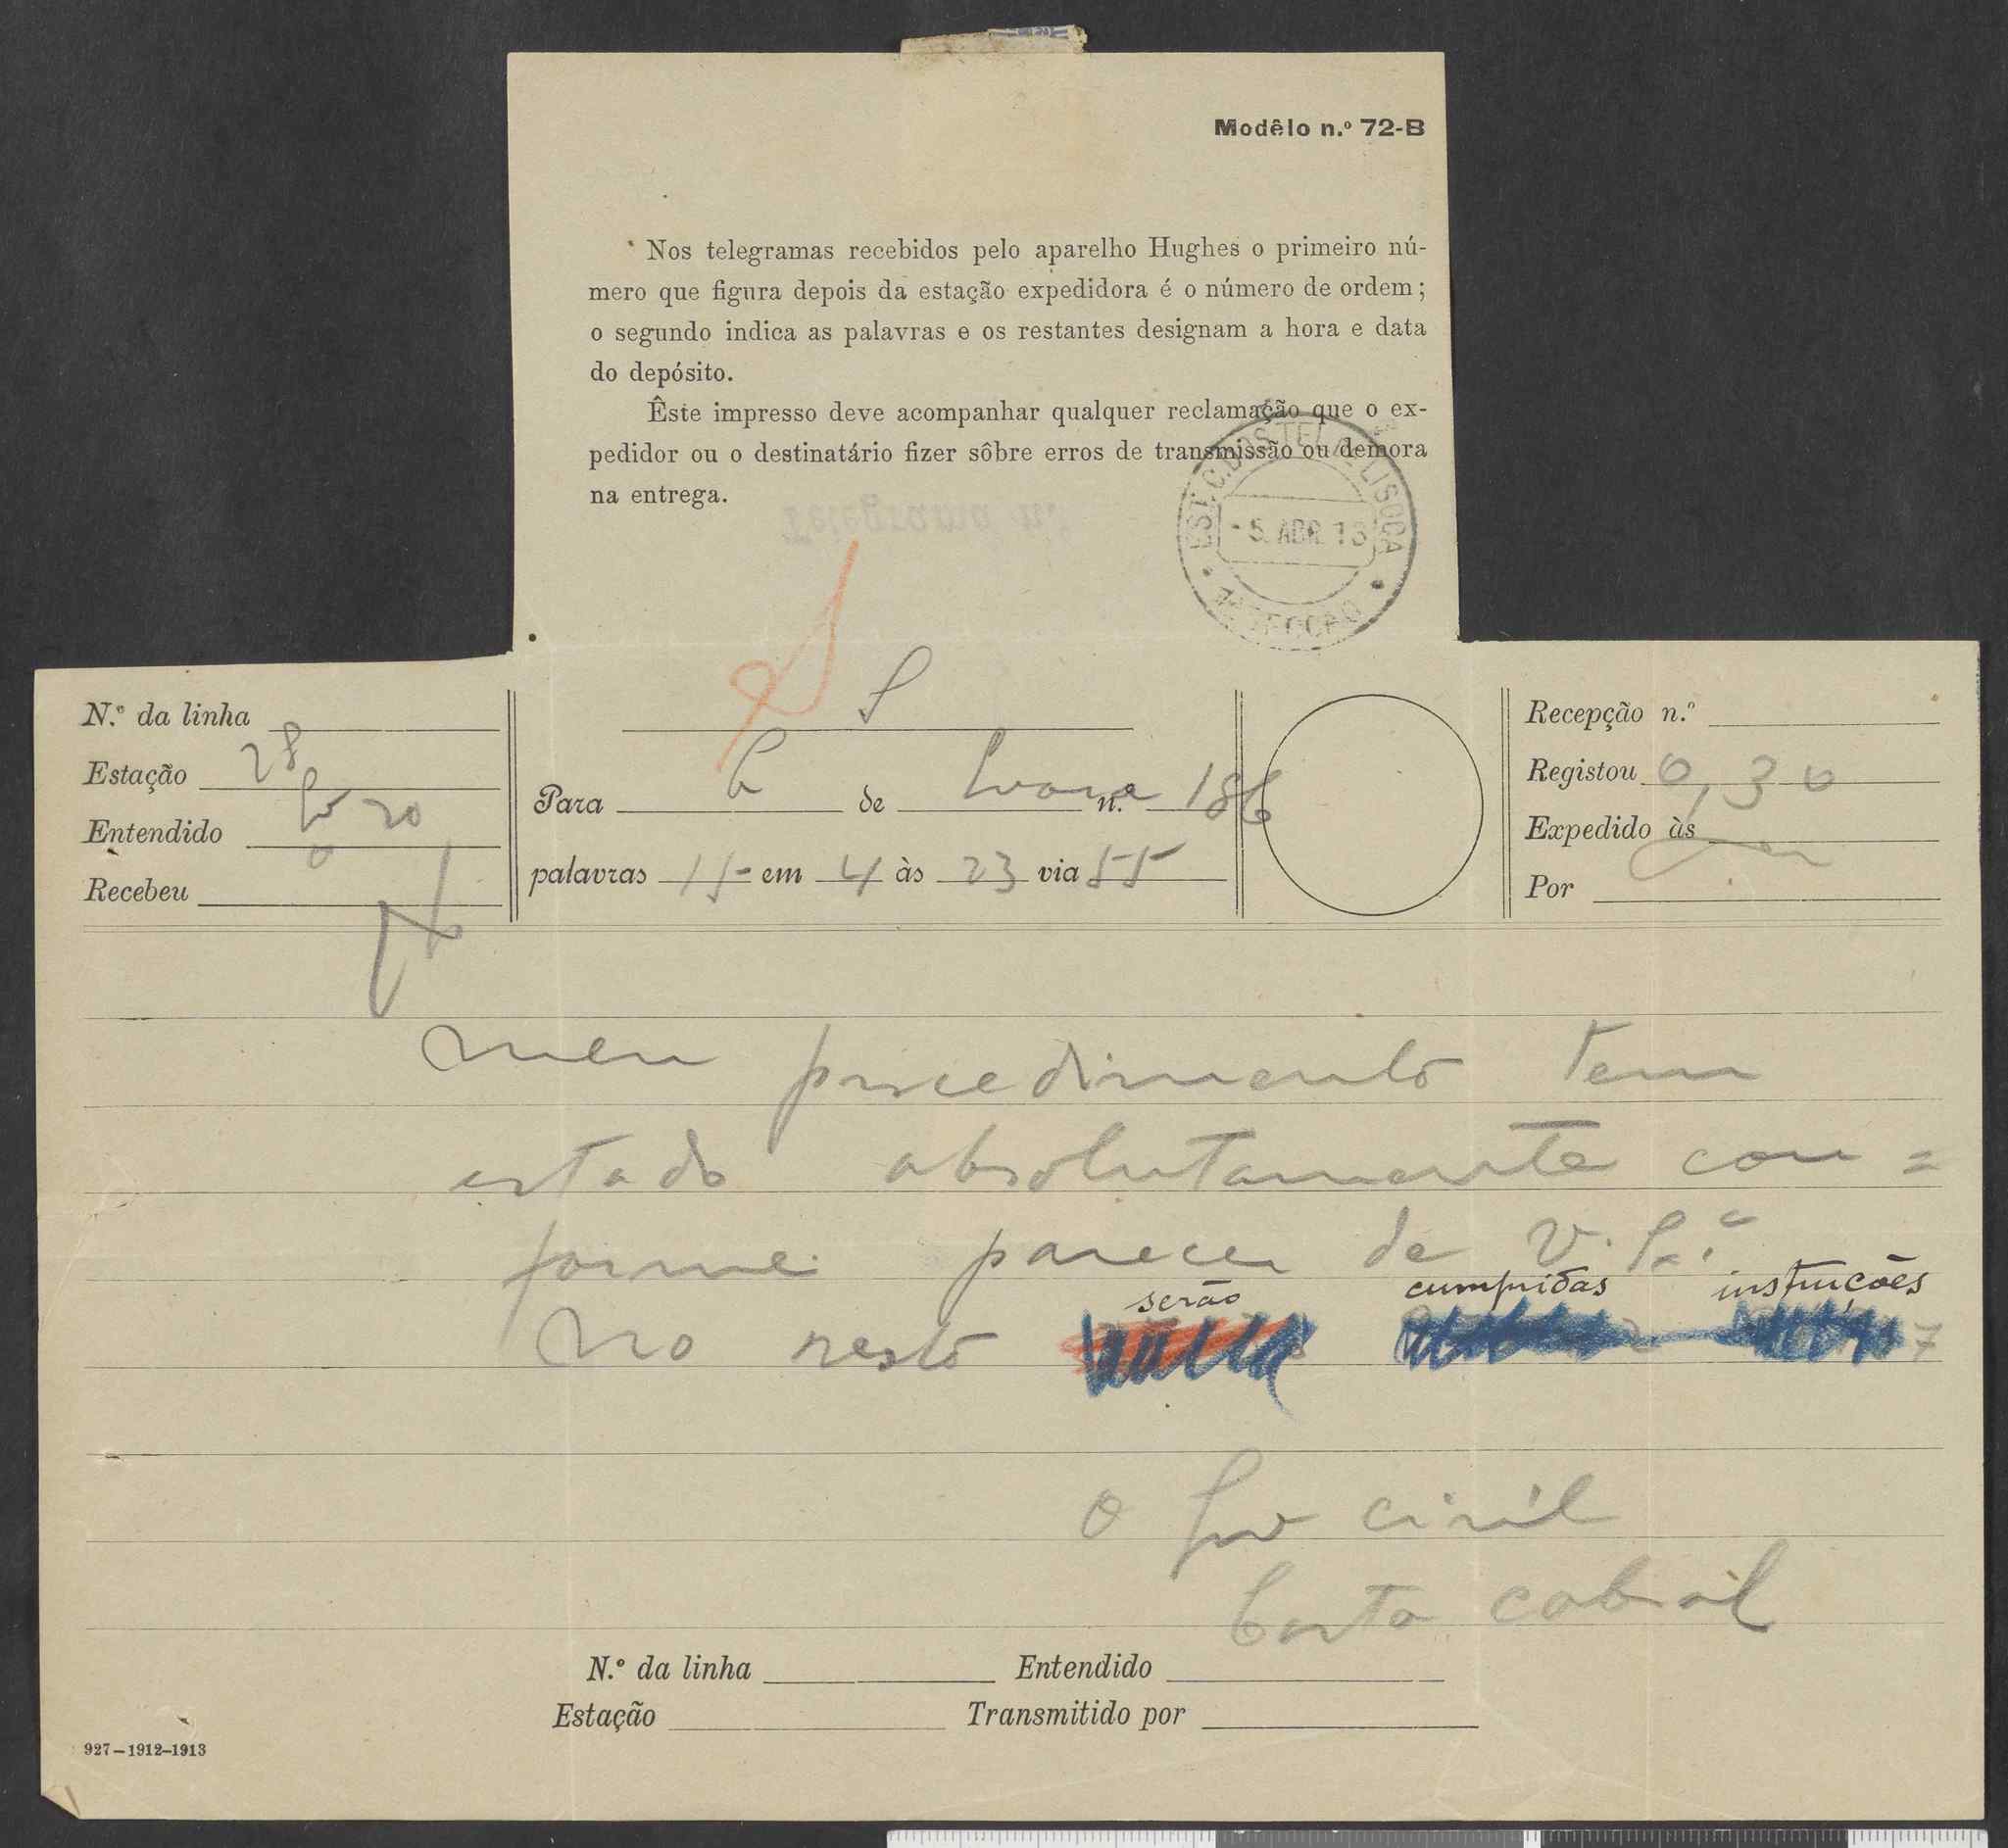 Modêlo n.º 72-B
Nos telegramas recebidos pelo aparelho Hughes o primeiro nú-
mero que figura depois da estação expedidora é o número de ordem;
o segundo indica as palavras e os restantes designam a hora e data
do depósito.
Êste impresso deve acompanhar qualquer reclamação que o ex-
pedidor ou o destinatário fizer sôbre erros de transmissão ou demora
na entrega.
Telegrama n.º
LISBOA
-5. ABR. 13
N.º da linha
Estação 28
Entendido 20
Recebeu
S
Para de n.º 186
palavras 15 em 4 às 23 via 55
Recepção n.º
Registou 0,30
Expedido às
Por
meu procedimento tem
estado absolutamente con=
forme parecer de V. Ex.ª
serão cumpridas instruções
No resto 7
O Gov civil
Costa Cabral
N.º da linha Entendido
Estação Transmitido por
927-1912-1913